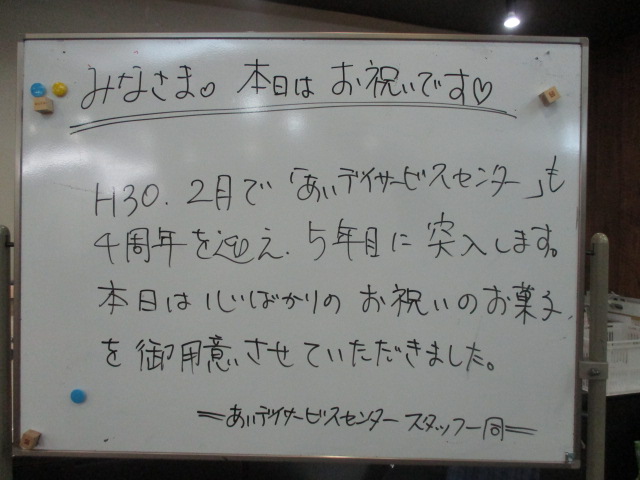 みなさま♡ 本日は お祝いです♡
H30. 2月で 「あいデイサービスセンター」も
4周年を迎え、5年目に 突入します。
本日は 心ばかりの お祝いのお菓子
を 御用意させていただきました。
=あいデイサービスセンター スタッフ一同=